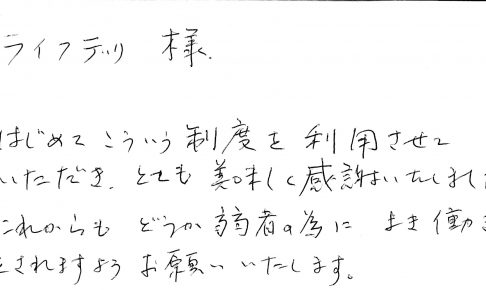 ライフデリ 様.
はじめてこういう制度を利用させて
いただき、とても美味しく感謝いたしました
これからも どうか弱者の為に よき働き
をされますようお願いいたします。